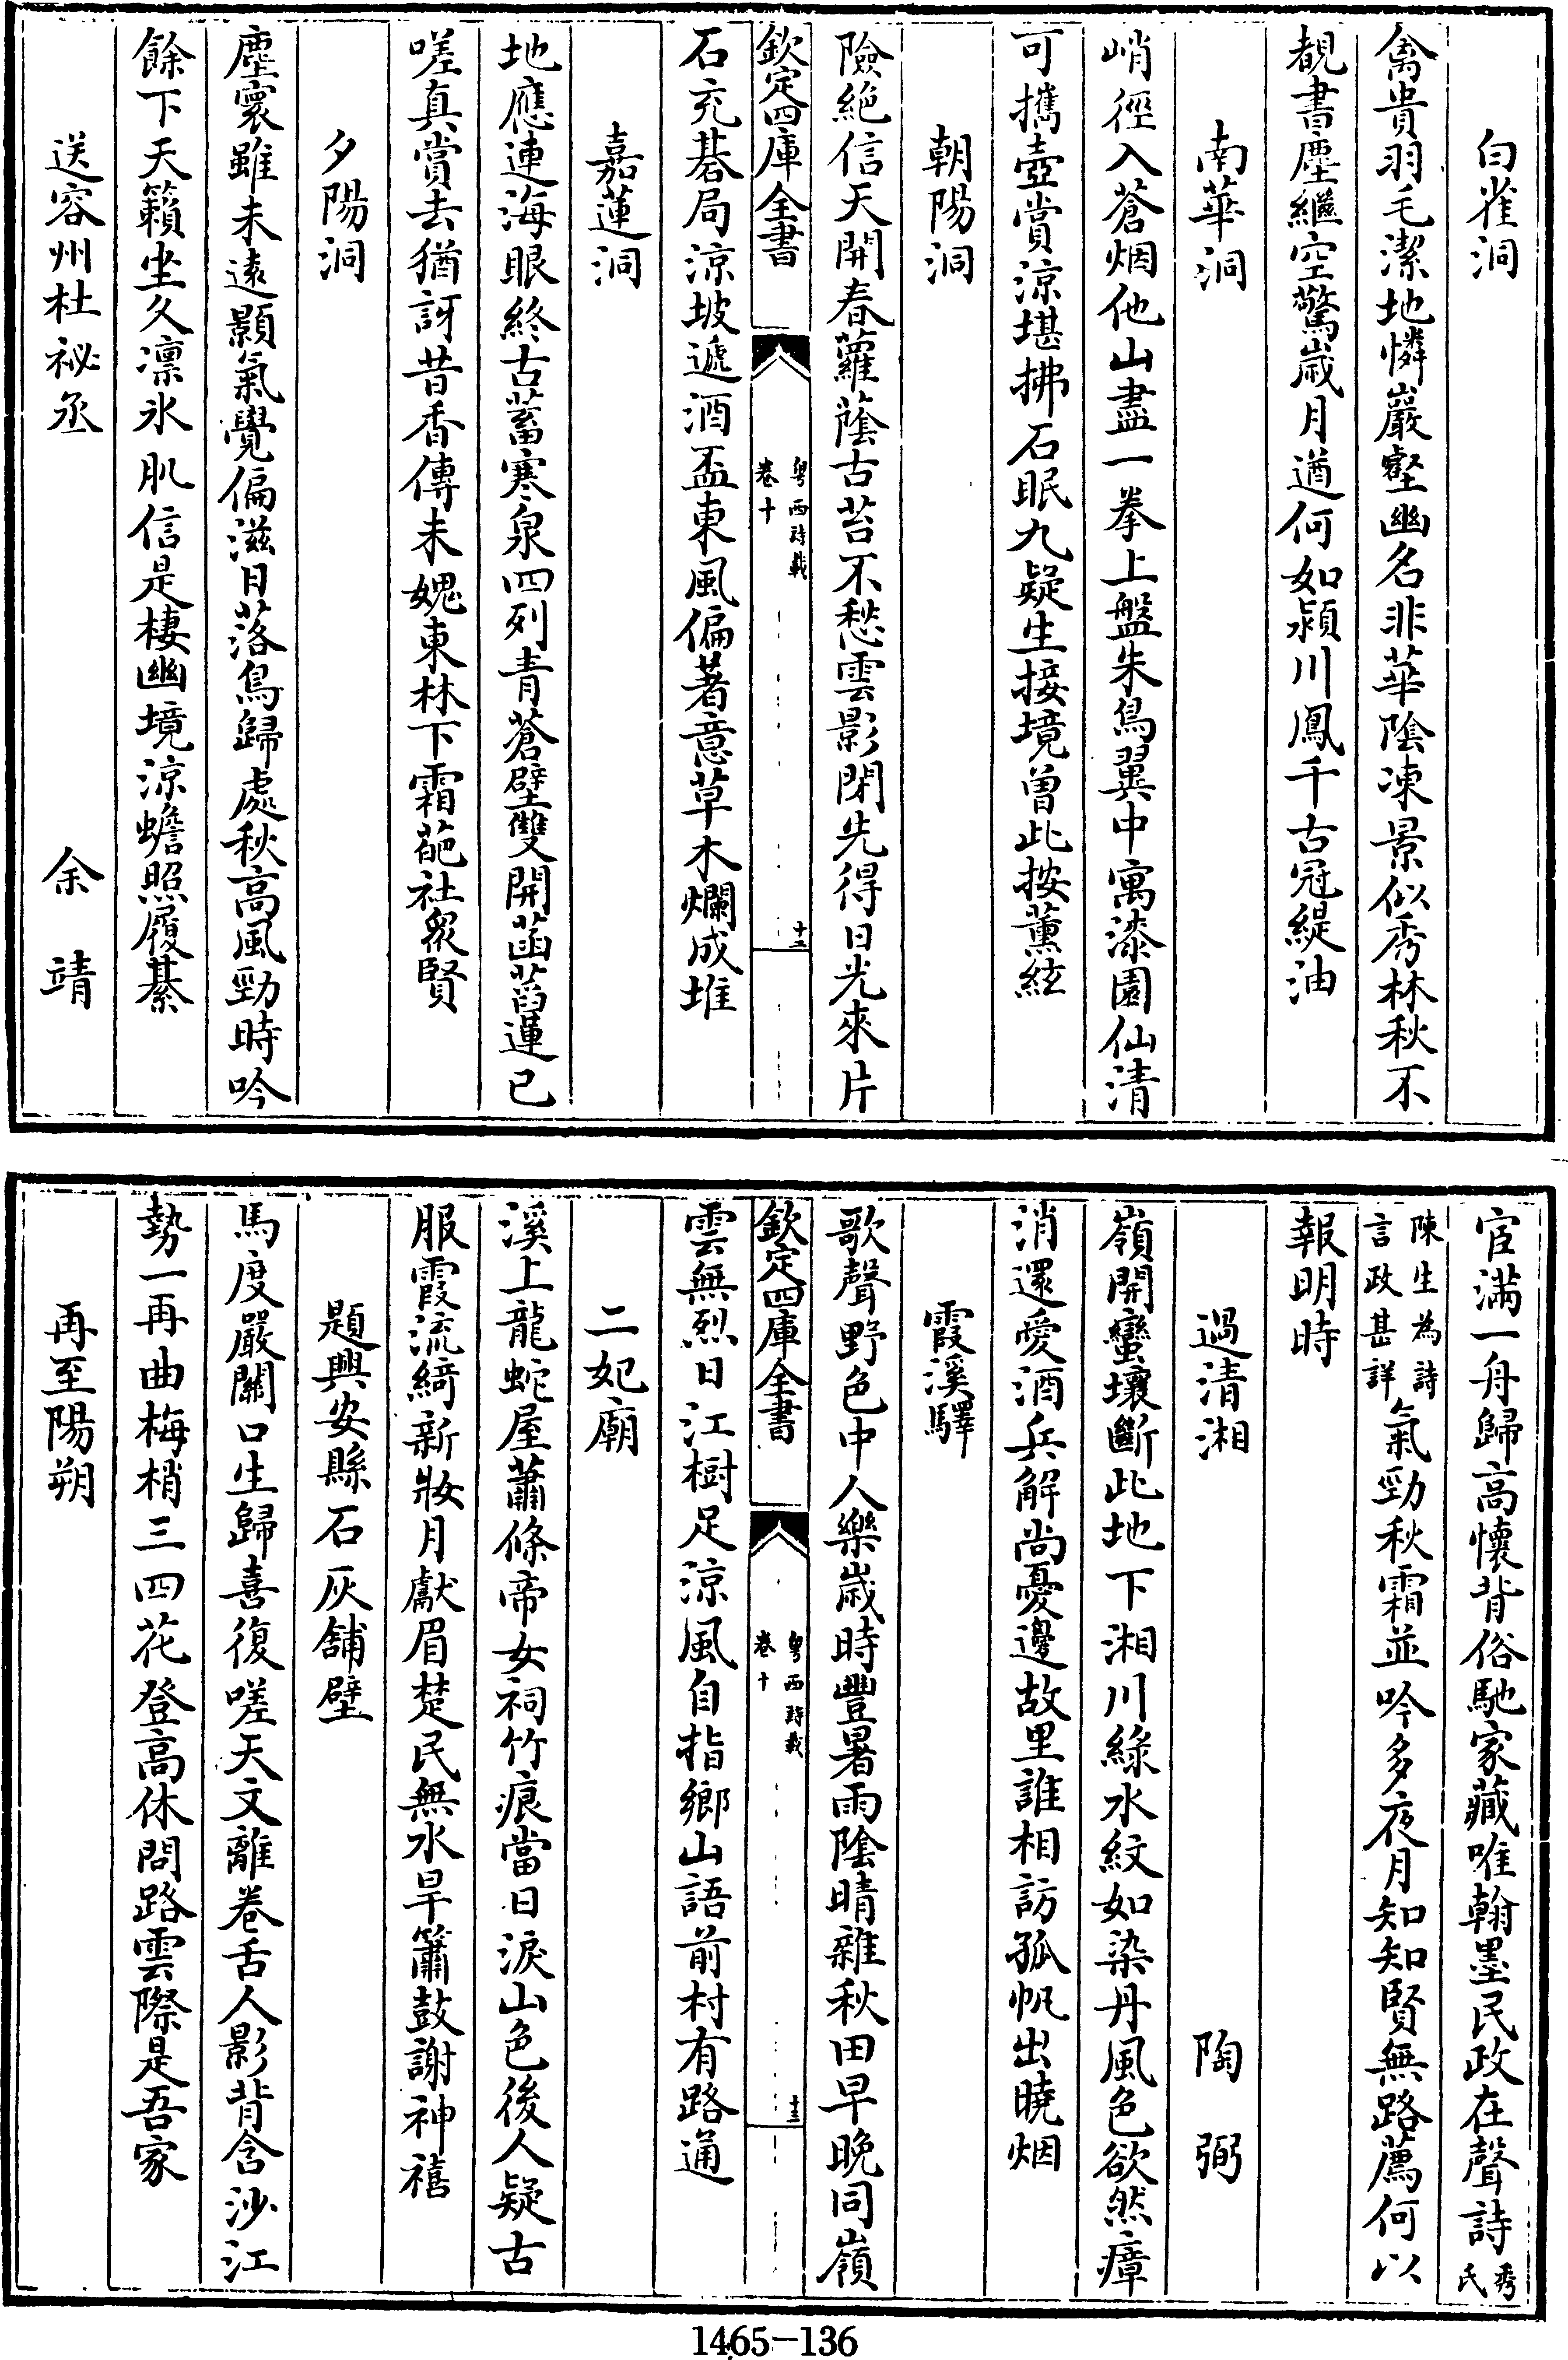 白雀洞
禽貴羽毛潔地憐巖壑幽名非華隂凍景似秀林秋不
覩書塵繼空驚嵗月遒何如潁川鳳千古冠緹油
南華洞
峭徑入蒼烟他山盡一拳上盤朱鳥翼中寓漆園仙清
可攜壺賞涼堪拂石眠九疑生接境曾此按薰絃
朝陽洞
險絶信天開春蘿蔭古苔不愁雲影閉先得日光來片
欽定四庫全書
粤西詩載
卷十
十二
石充碁局涼坡遞酒盃東風偏著意草木爛成堆
嘉蓮洞
地應連海眼終古蓄寒泉四列青蒼壁雙開菡萏蓮已
嗟真賞去猶訝昔香傳未媿東林下霜葩社衆賢
夕陽洞
塵寰雖未逺顥氣覺偏滋日落鳥歸處秋高風勁時吟
餘下天籟坐久凛氷肌信是棲幽境涼蟾照履綦
送容州杜祕丞
余靖
宦满一舟歸高懐背俗馳家藏唯翰墨民政在聲詩秀
氏
陳生為詩
言政甚詳氣勁秋霜並吟多夜月知知賢無路薦何以
報明時
過清湘
陶弼
嶺開蠻壤斷此地下湘川緑水紋如染丹風色欲然瘴
消還愛酒兵解尚憂邊故里誰相訪孤帆出曉烟
霞溪驛
歌聲野色中人樂嵗時豐暑雨隂晴雜秋田早晚同嶺
欽定四庫全書
粤西詩載
卷十
十三
雲無烈日江樹足涼風自指鄉山語前村有路通
二妃廟
溪上龍蛇屋蕭條帝女祠竹痕當日淚山色後人疑古
服霞流綺新妝月獻眉楚民無水旱簫鼓謝神禧
題興安縣石灰舖壁
馬度嚴關口生歸喜復嗟天文離卷舌人影背含沙江
勢一再曲梅梢三四花登高休問路雲際是吾家
再至陽朔
1465-136